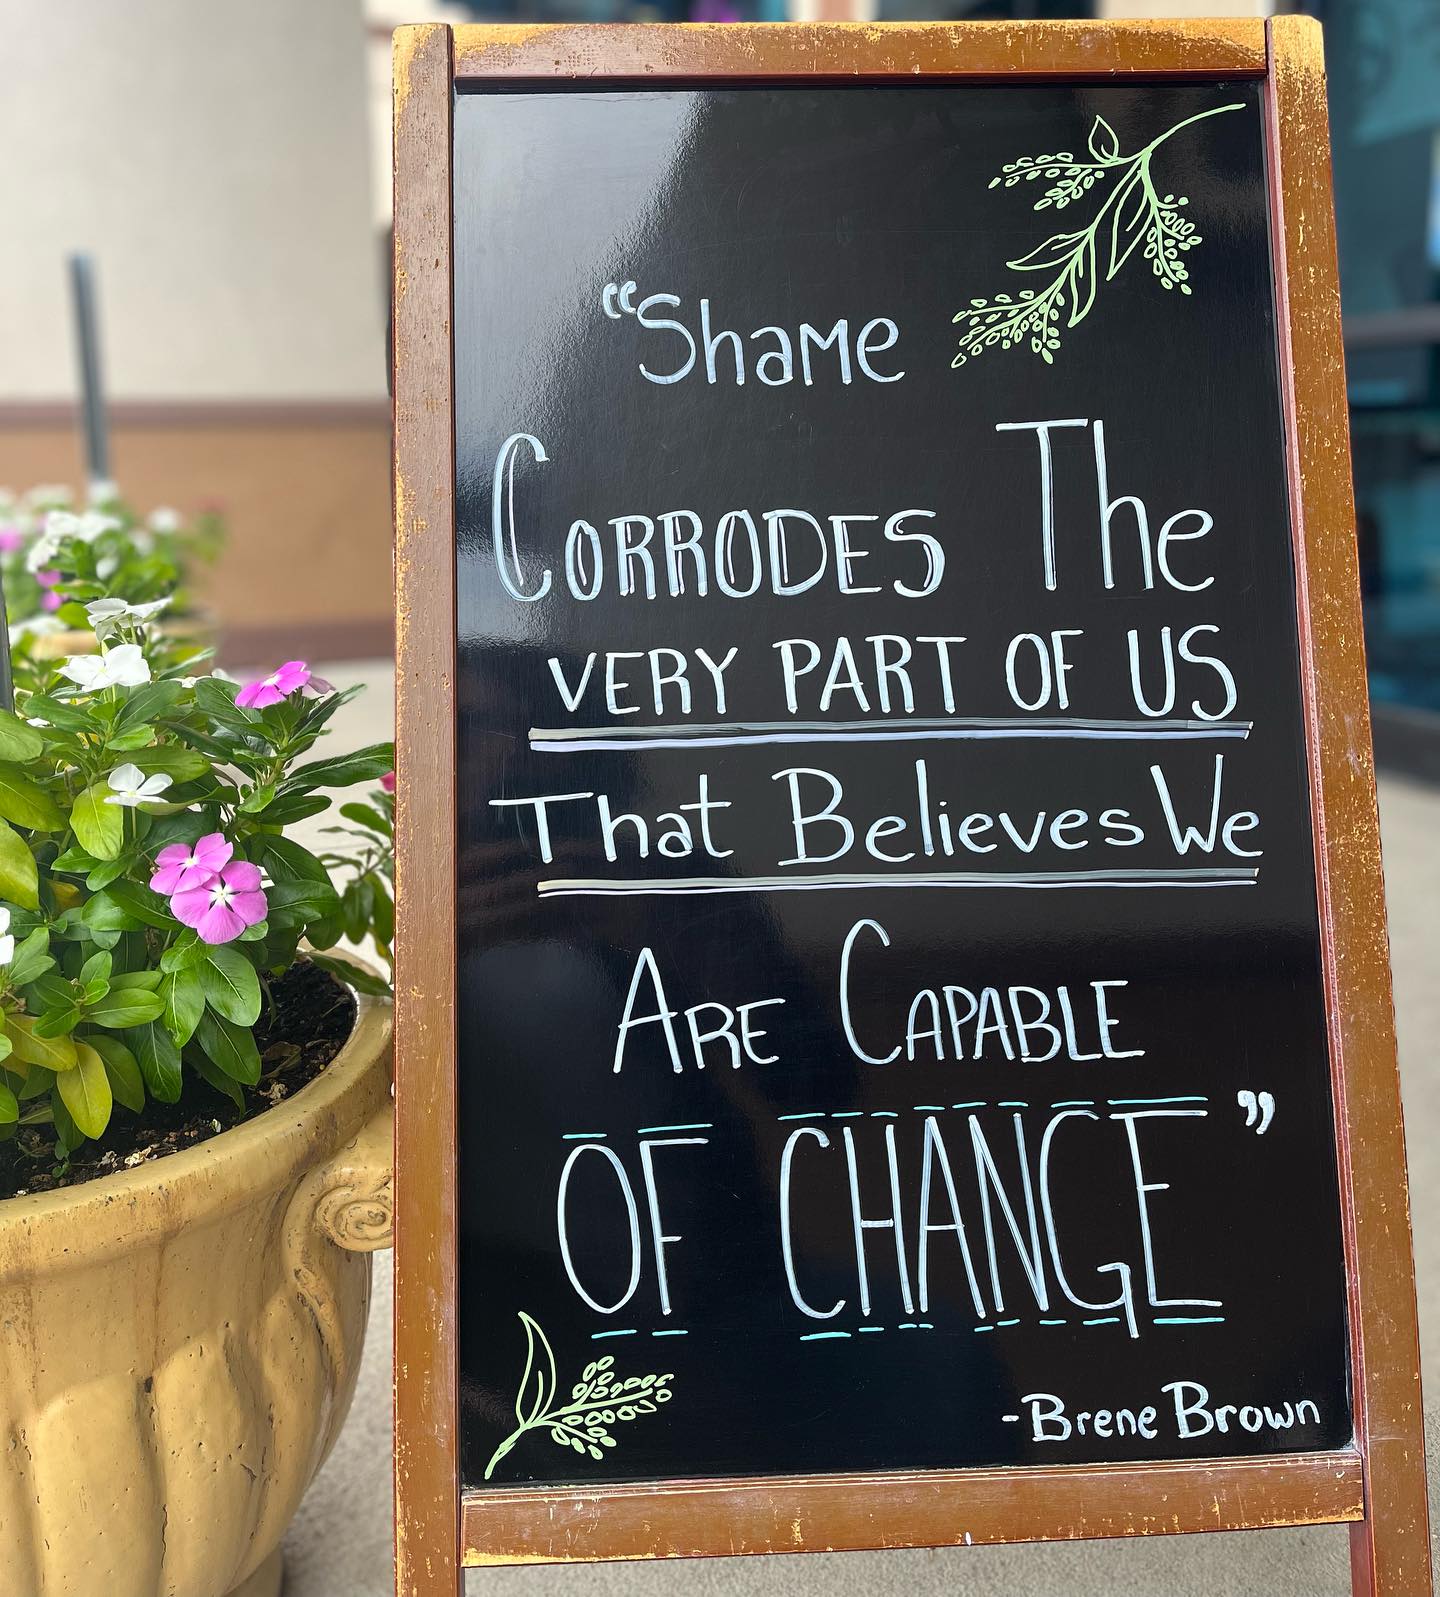 “Shame
CORRODES The
VERY PART OF US
That Believes We
ARE CAPABLE
OF CHANGE”
-Brene Brown